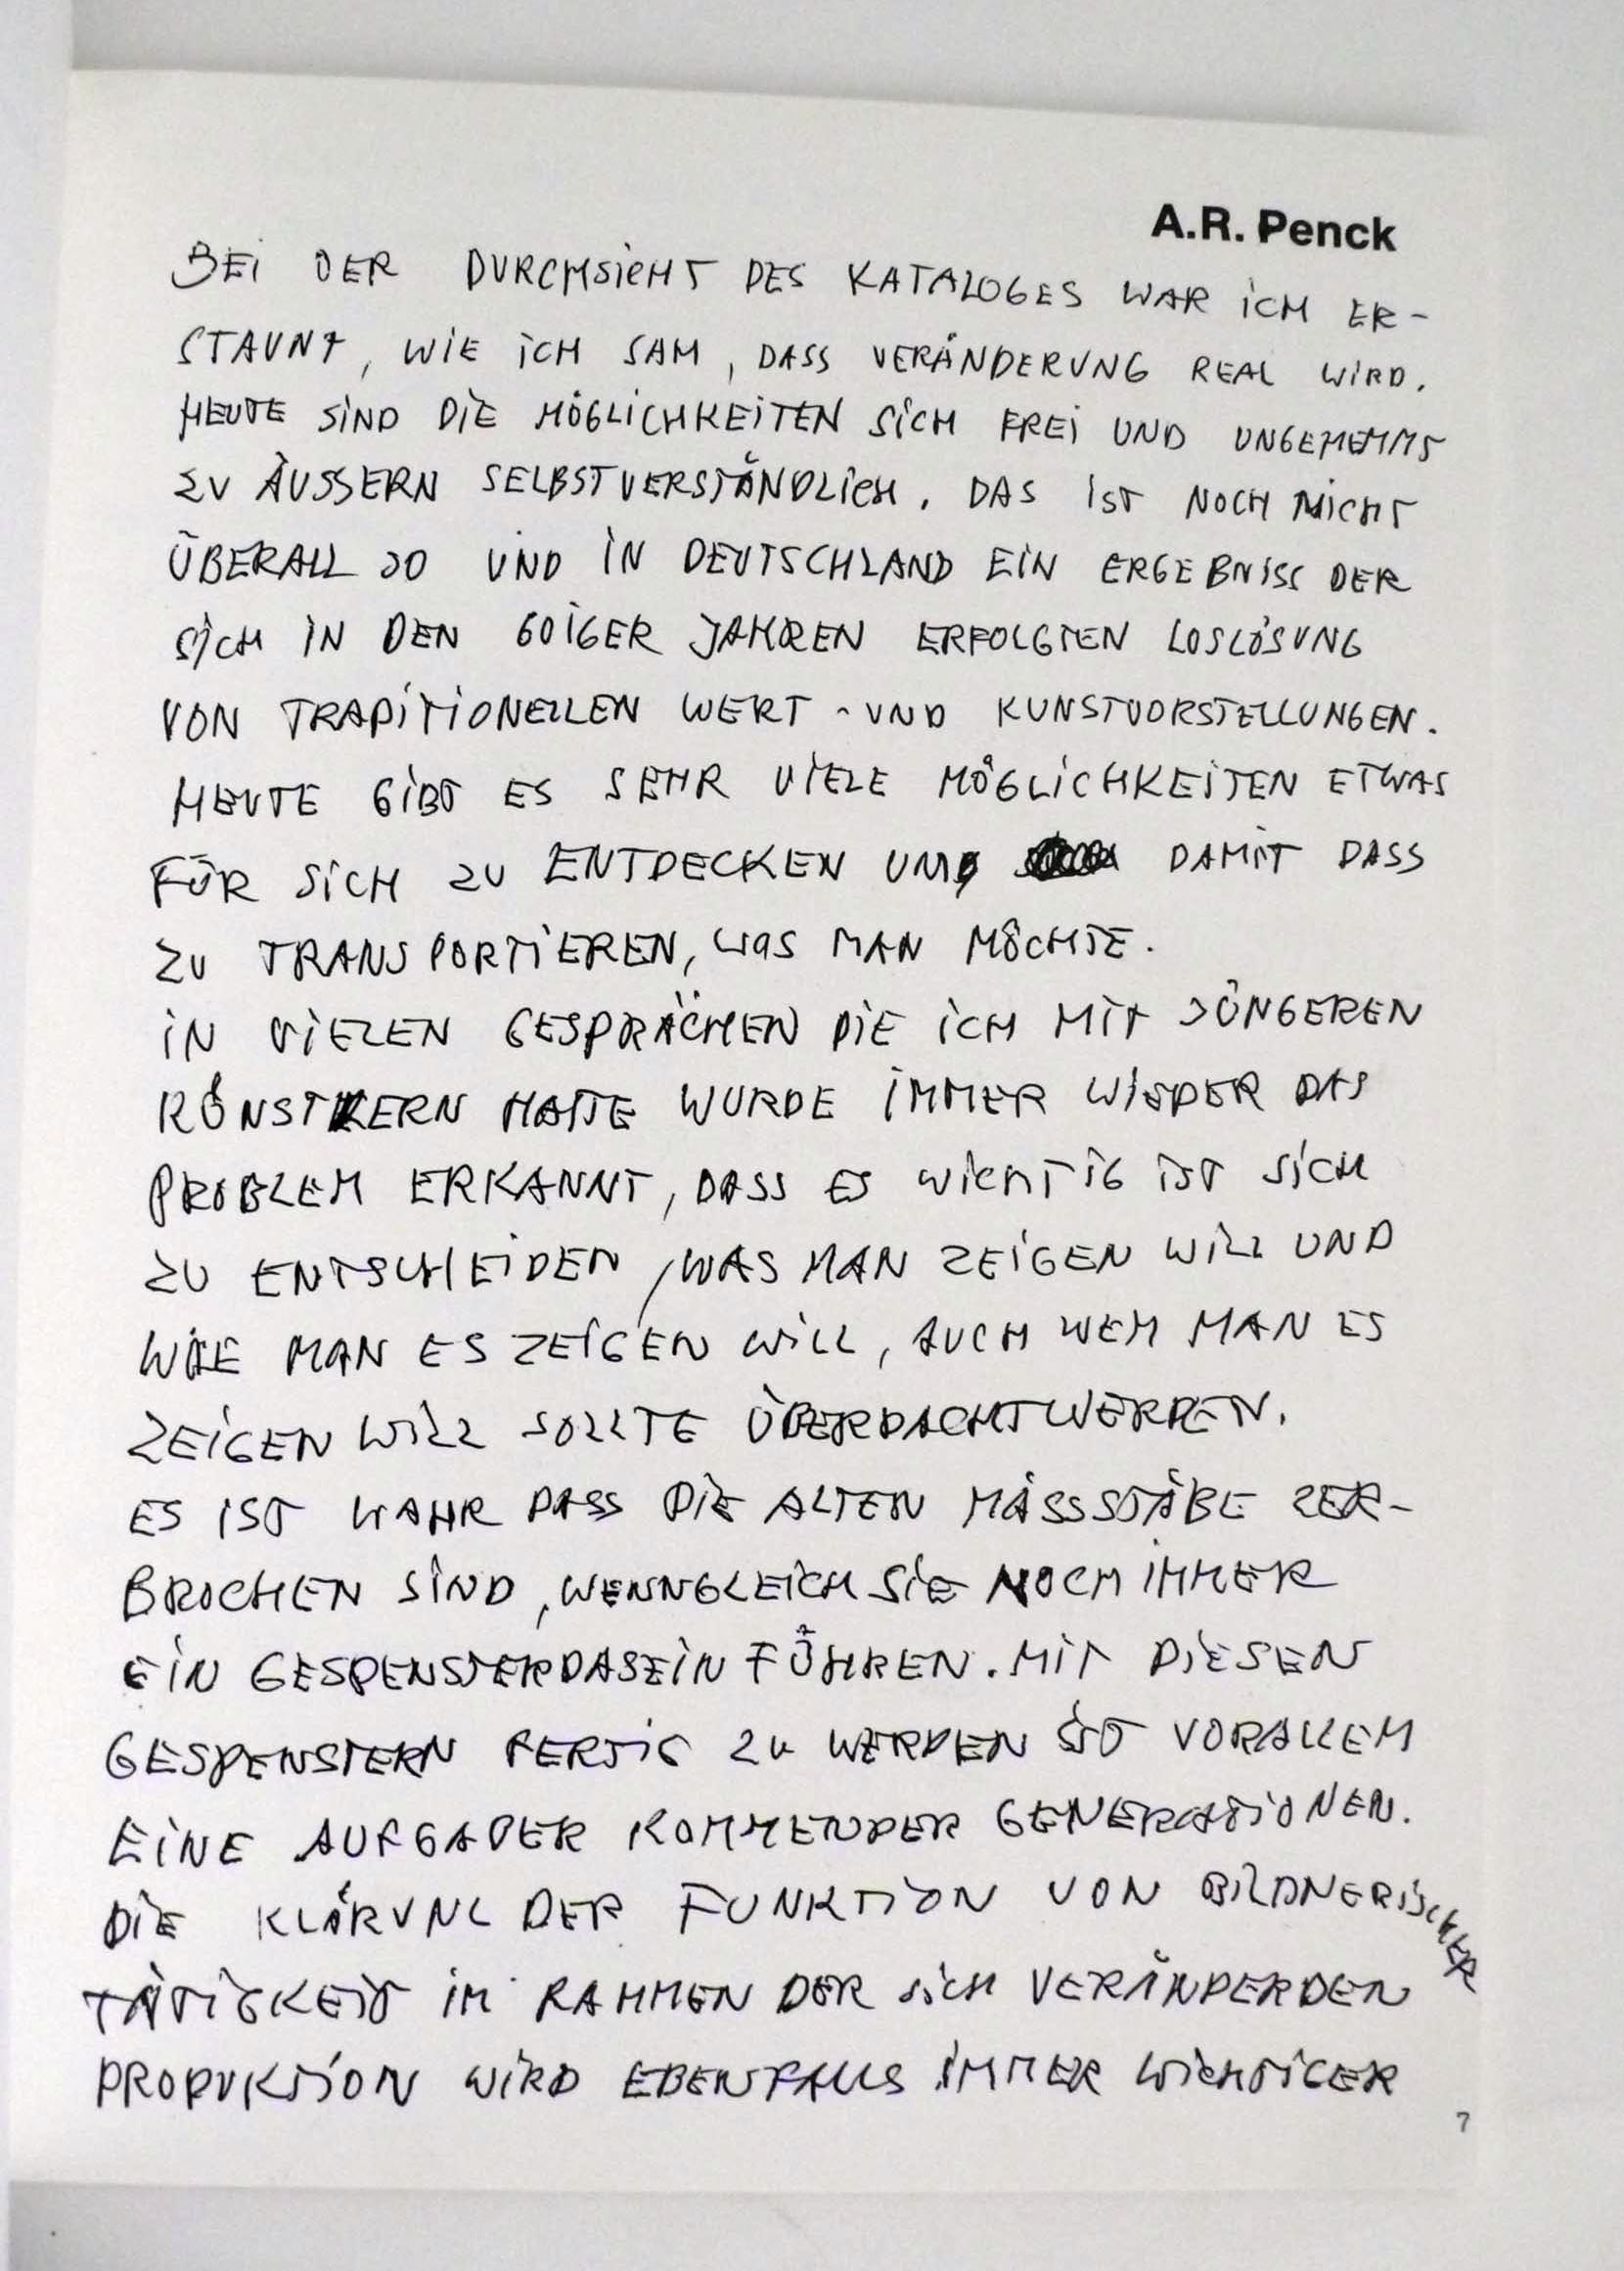 A.R. Penck
BEI DER DURCHSICHT DES KATALOGES WAR ICH ER-
STAUNT, WIE ICH SAH, DASS VERÄNDERUNG REAL WIRD.
HEUTE SIND DIE MÖGLICHKEITEN SICH FREI UND UNGEHEMMT
ZU ÄUSSERN SELBSTVERSTÄNDLICH. DAS IST NOCH NICHT
ÜBERALL SO UND IN DEUTSCHLAND EIN ERGEBNISS DER
SICH IN DEN 60IGER JAHREN ERFOLGTEN LOSLÖSUNG
VON TRADITIONELLEN WERT-UND KUNSTVORSTELLUNGEN.
HEUTE GIBT ES SEHR VIELE MÖGLICHKEITEN ETWAS
FÜR SICH ZU ENTDECKEN UND DAMIT DASS
ZU TRANSPORTIEREN, WAS MAN MÖCHTE.
IN VIELEN GESPRÄCHEN DIE ICH MIT JÜNGEREN
KÜNSTLERN HATTE WURDE IMMER WIEDER DAS
PROBLEM ERKANNT, DASS ES WICHTIG IST SICH
ZU ENTSCHEIDEN, WAS MAN ZEIGEN WILL UND
WIE MAN ES ZEIGEN WILL, AUCH WEM MAN ES
ZEIGEN WILL SOLLTE ÜBERDACHT WERDEN.
ES IST WAHR DASS DIE ALTEN MÄSSSTÄBE ZER-
BROCHEN SIND, WENNGLEICH SIE NOCH IMMER
EIN GESPENSTERDASEIN FÜHREN. MIT DIESEN
GESPENSTERN FERTIG ZU WERDEN IST VORALLEM
EINE AUFGABER KOMMENDER GENERATIONEN.
DIE KLÄRUNG DER FUNKTION VON BILDNERISCHER
TÄTIGKEIT IM RAHMEN DER SICH VERÄNDERDEN
PRODUKTION WIRD EBENFALLS IMMER WICHTIGER
7